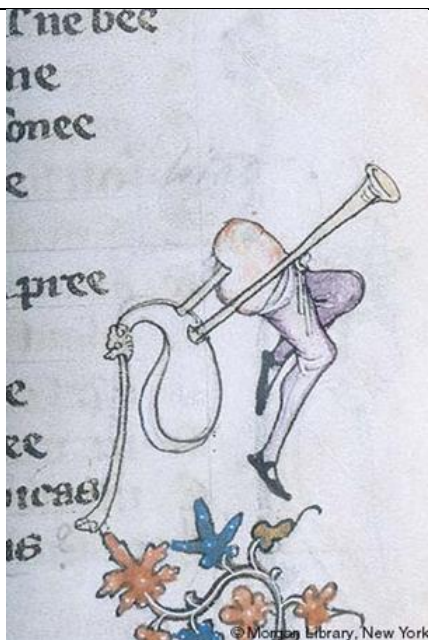 ne bee
ne
onee
e
pree
e
ee
dicas
is
© Morgan Library, New York